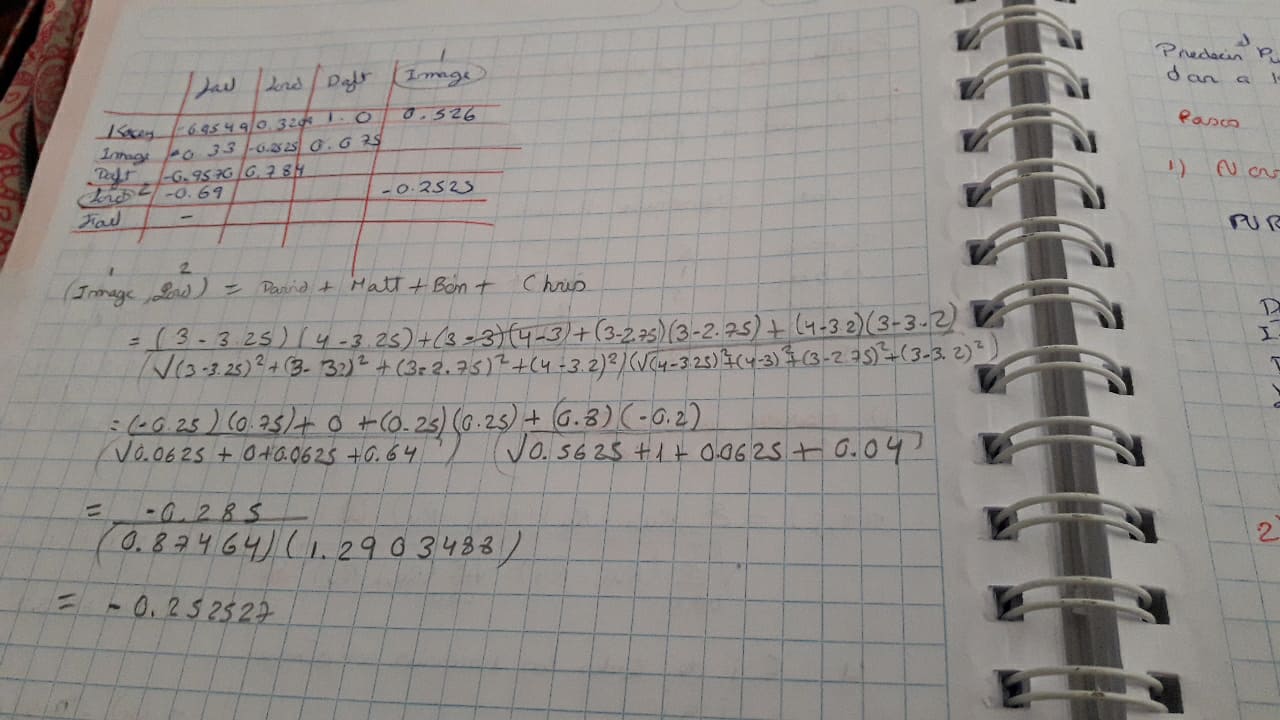 Daft Image 1
Kacey 0.3209 1.0 0.526
Image -0.33 -0.2525 0.675
Daft -0.9570 0.784
Lord 2 -0.69 -0.2525
-
1 2
(Image, Lord) = David + Matt + Ben + Chris
= (3 - 3.25) (4 - 3.25) + (3 - 3) (4 - 3) + (3-2.75) (3-2.75) + (4-3.2) (3-3.2)
(√(3-3.25)² + (3-3)² + (3-2.75)² + (4-3.2)²) (√(4-3.25)² + (4-3)² + (3-2.75)² + (3-3.2)²)
= (-0.25) (0.75) + 0 + (0.25) (0.25) + (0.8) (-0.2)
(√0.0625 + 0 + 0.0625 + 0.64) (√0.5625 + 1 + 0.0625 + 0.04)
= -0.285
(0.87464) (1.2903488)
= -0.252527
Predecir
dan a
Pasos
1)
2